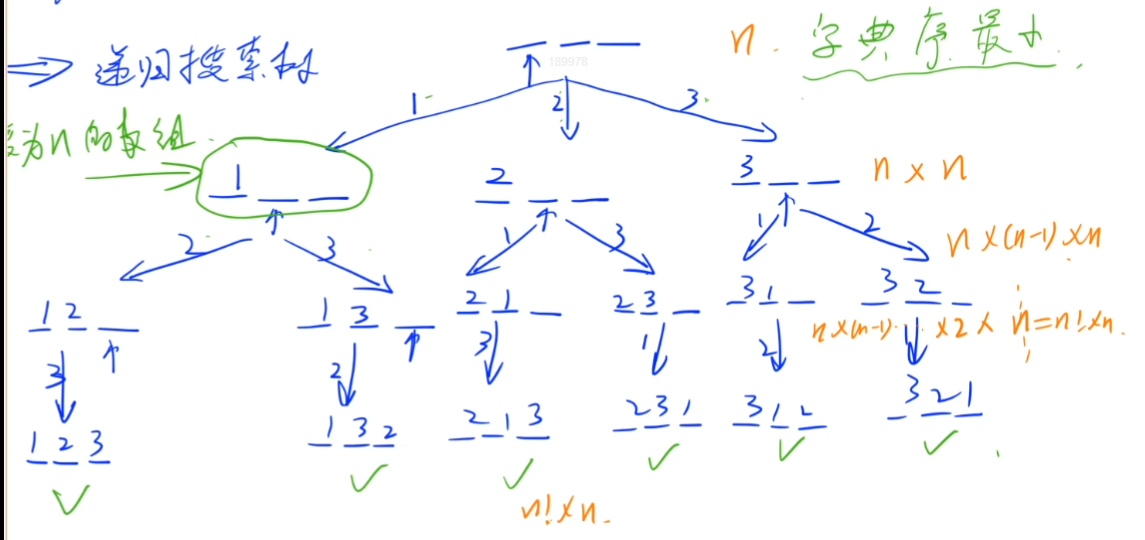 n. 字典序最小.
189978
⇒ 递归搜索树
1 2 3
为n的数组.
1 _ _ 2 _ _ 3 _ _ n × n
2 3 1 3 1 2 n×(n-1)×n
1 2 _ 1 3 _ 2 1 _ 2 3 _ 3 1 _ 3 2 _
n×(n-1) ×2× n=n!×n.
3 2 3 1 2 1
1 2 3 1 3 2 2 1 3 2 3 1 3 1 2 3 2 1
✓ ✓ ✓ ✓ ✓ ✓
n!×n.